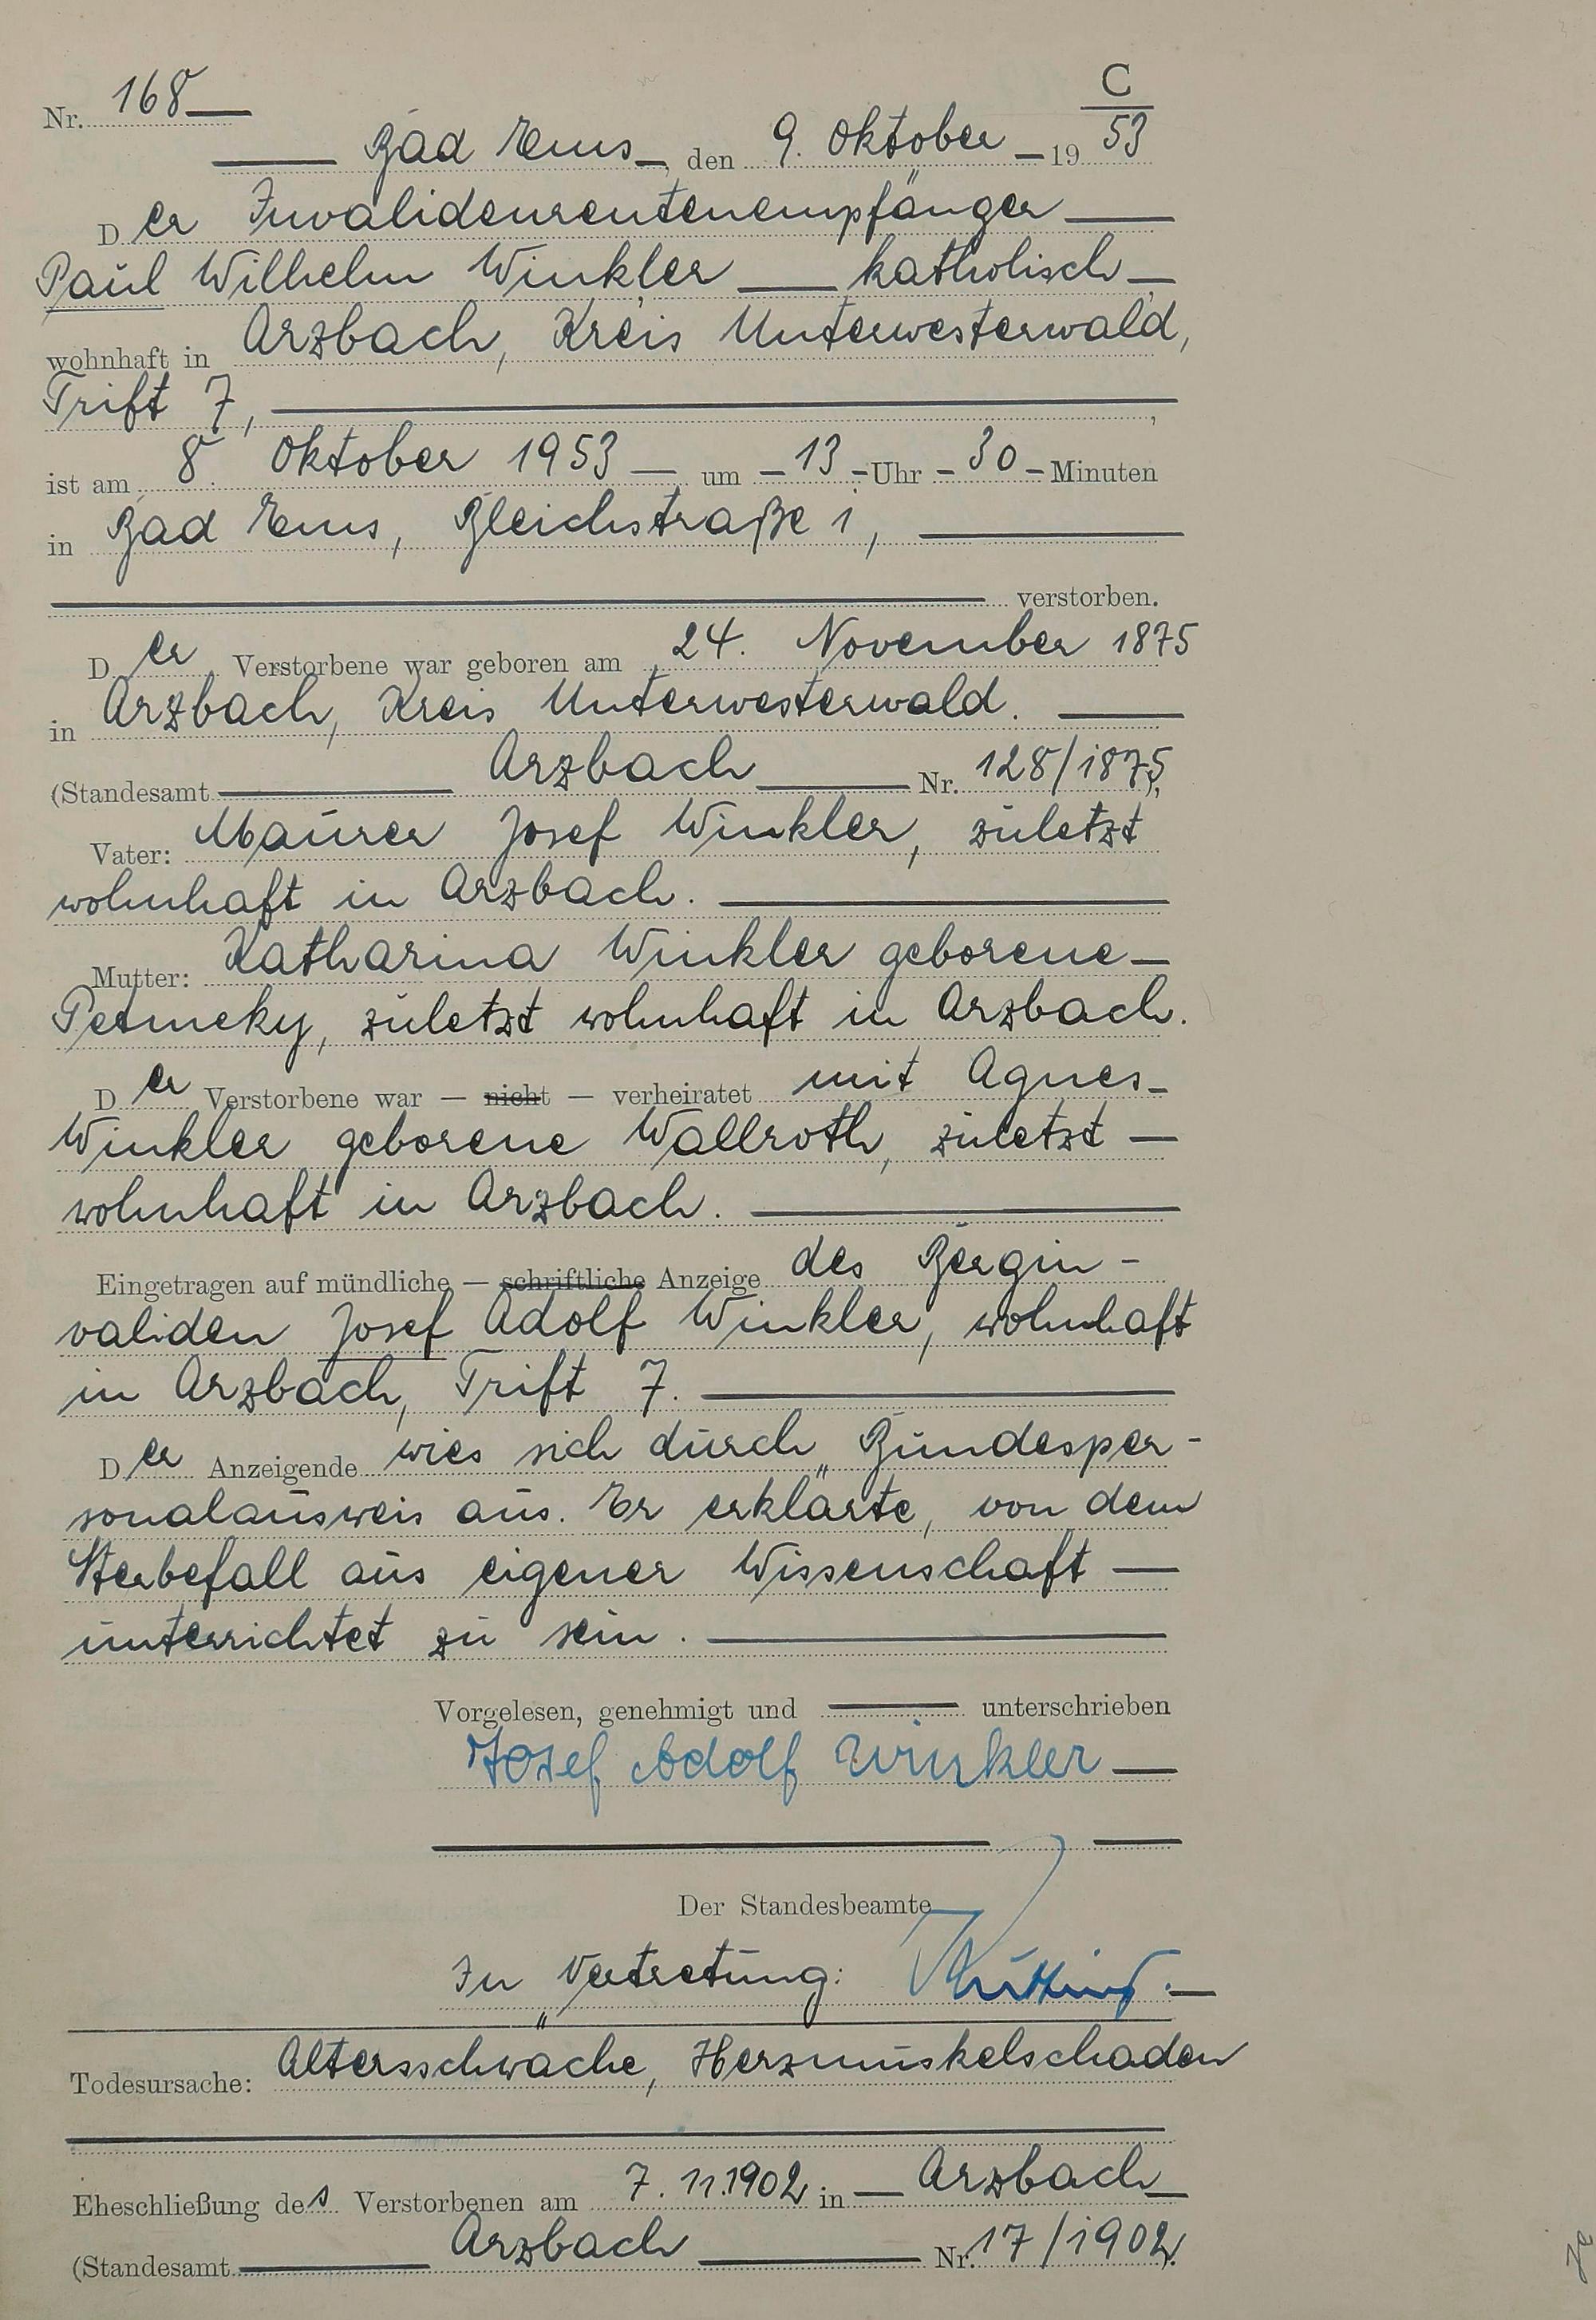 C
Nr. 168
Bad Ems, den 9. Oktober 19 53
Der Invalidenrentenempfänger
Paul Wilhelm Winkler katholisch
wohnhaft in Arzbach, Kreis Unterwesterwald,
Trift 7,
ist am 8. Oktober 1953 um 13 Uhr 30 Minuten
in Bad Ems, Bleichstraße 1,
verstorben.
Der Verstorbene war geboren am 24. November 1875
in Arzbach, Kreis Unterwesterwald.
(Standesamt Arzbach Nr. 128/1875),
Vater: Maurer Josef Winkler, zuletzt
wohnhaft in Arzbach.
Mutter: Katharina Winkler geborene
zuletzt wohnhaft in Arzbach.
Der Verstorbene war — nicht — verheiratet mit Agnes
Winkler geborene Wallroth, zuletzt
wohnhaft in Arzbach.
Eingetragen auf mündliche — schriftliche Anzeige des Bergin-
validen Josef Adolf Winkler, wohnhaft
in Arzbach, Trift 7.
Der Anzeigende wies sich durch Bundesper-
sonalausweis aus. Er erklärte, von dem
Sterbefall aus eigener Wissenschaft
unterrichtet zu sein.
Vorgelesen, genehmigt und unterschrieben
Josef Adolf Winkler
Der Standesbeamte
In Vertretung:
Todesursache: Altersschwäche, Herzmuskelschaden
Eheschließung des Verstorbenen am 7.11.1902 in Arzbach
(Standesamt Arzbach Nr. 17/1902).